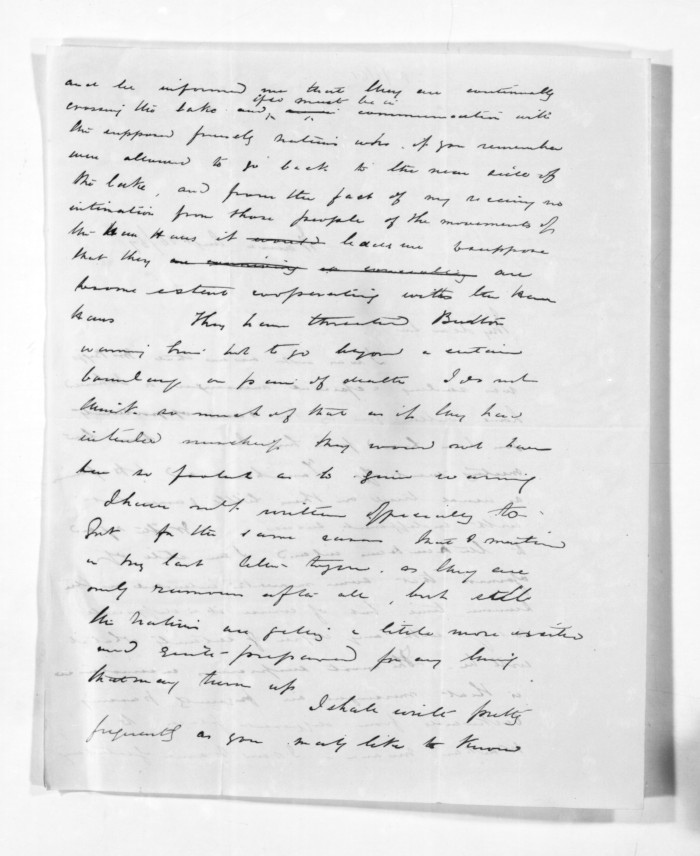 and he informed me that they are continually
crossing the lake and, if so must be in communication with
the supposed friendly natives who, if you remember
were allowed to go back to the near side of
the lake, and from the fact of my receiving no
intimation from those people of the movements of
the Hau Haus it would leads me to suppose
that they are are
to some extent cooperating with the Hau
Haus They have threatened
warning him not to go beyond a certain
boundary on pain of death I do not
think so much of that as if they had
intended mischief they would not have
been so foolish as to give warning
I have not written officially to
Govt for the same reason that I mention
in my last letter to you, as they are
only rumours after all, but still
the Natives are getting a little more excited
and quite prepared for any thing
that may turn up
I shall write pretty
frequently as you may like to know